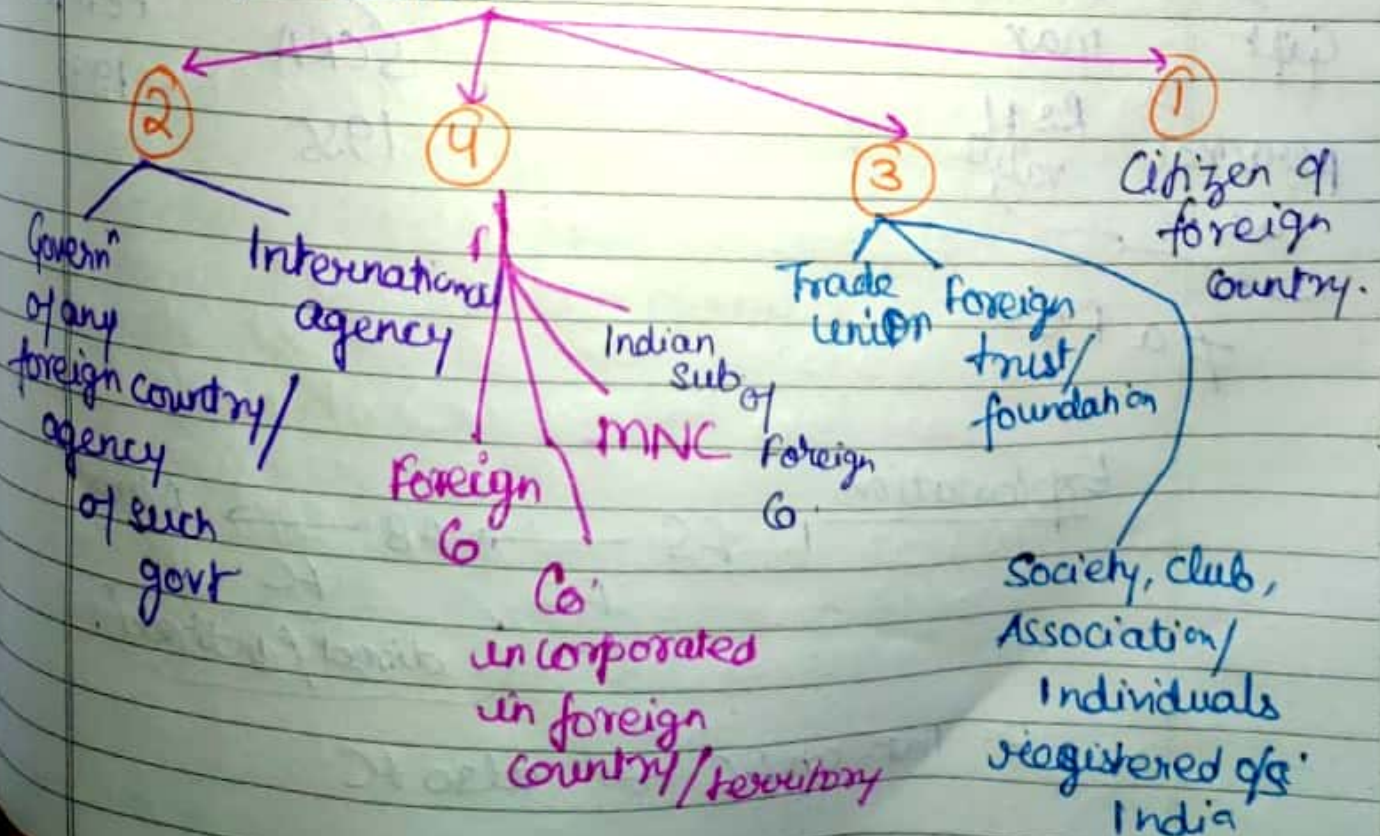 2
Governⁿ
of any
foreign country/
agency
of such
govt
International
agency
4
Foreign
Co
Co
incorporated
in foreign
country/territory
MNC
Indian
Sub
of
Foreign
Co.
3
Trade
union
Foreign
trust/
foundation
Society, Club,
Association/
Individuals
registered o/s
India
1
Citizen of
foreign
country.